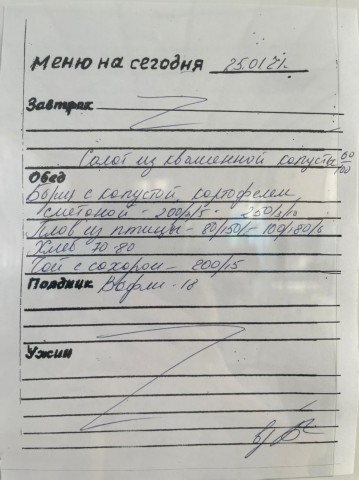 Меню на сегодня 25.01.21.
Завтрак
Салат из квашенной капусты 60/100
Обед
Борщ с капустой, картофелем
сметаной - 200/5 - 250/
Плов из птицы - 80/150/- 100/180/
Хлеб 70-80
Чай с сахаром - 200/15
Полдник Вафли - 18
Ужин